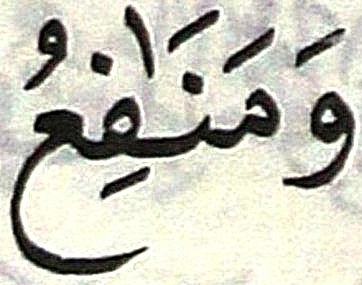 وَمَنَافِعُ